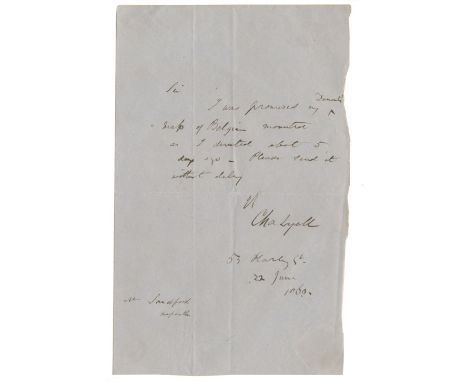 Sir
I was promised my Dumont's
map of Belgium mounted
as I directed about 5
days ago - Please send it
without delay
Cha Lyell
53 Harley St.
22 June
Mr Sandford